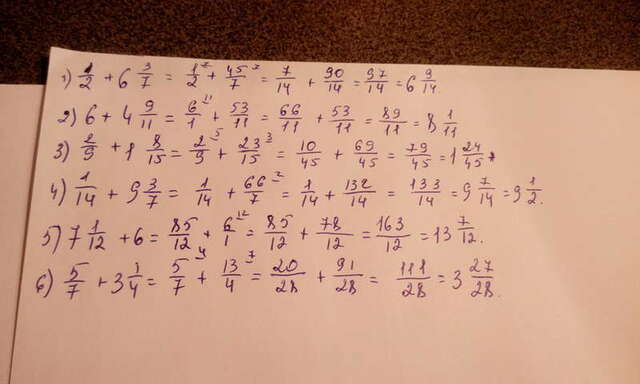 1) 1/2 + 6 3/7 = 1/2 + 45/7 = 7/14 + 90/14 = 97/14 = 6 9/14.
2) 6 + 4 9/11 = 6/1 + 53/11 = 66/11 + 53/11 = 89/11 = 8 1/11
3) 2/9 + 1 8/15 = 2/9 + 23/15 = 10/45 + 69/45 = 79/45 = 1 24/45.
4) 1/14 + 9 3/7 = 1/14 + 66/7 = 1/14 + 132/14 = 133/14 = 9 7/14 = 9 1/2.
5) 7 1/12 + 6 = 85/12 + 6/1 = 85/12 + 78/12 = 163/12 = 13 7/12.
6) 5/7 + 3 1/4 = 5/7 + 13/4 = 20/28 + 91/28 = 111/28 = 3 27/28.